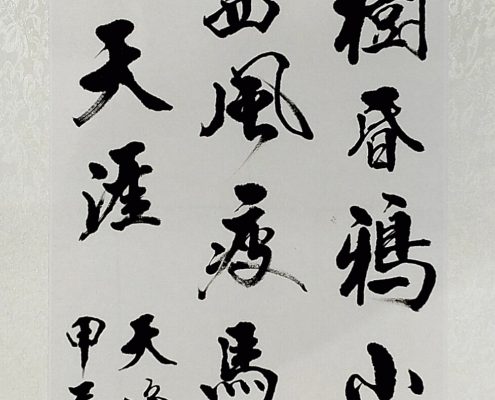 樹昏鴉小
西風瘦馬
天涯
天
甲